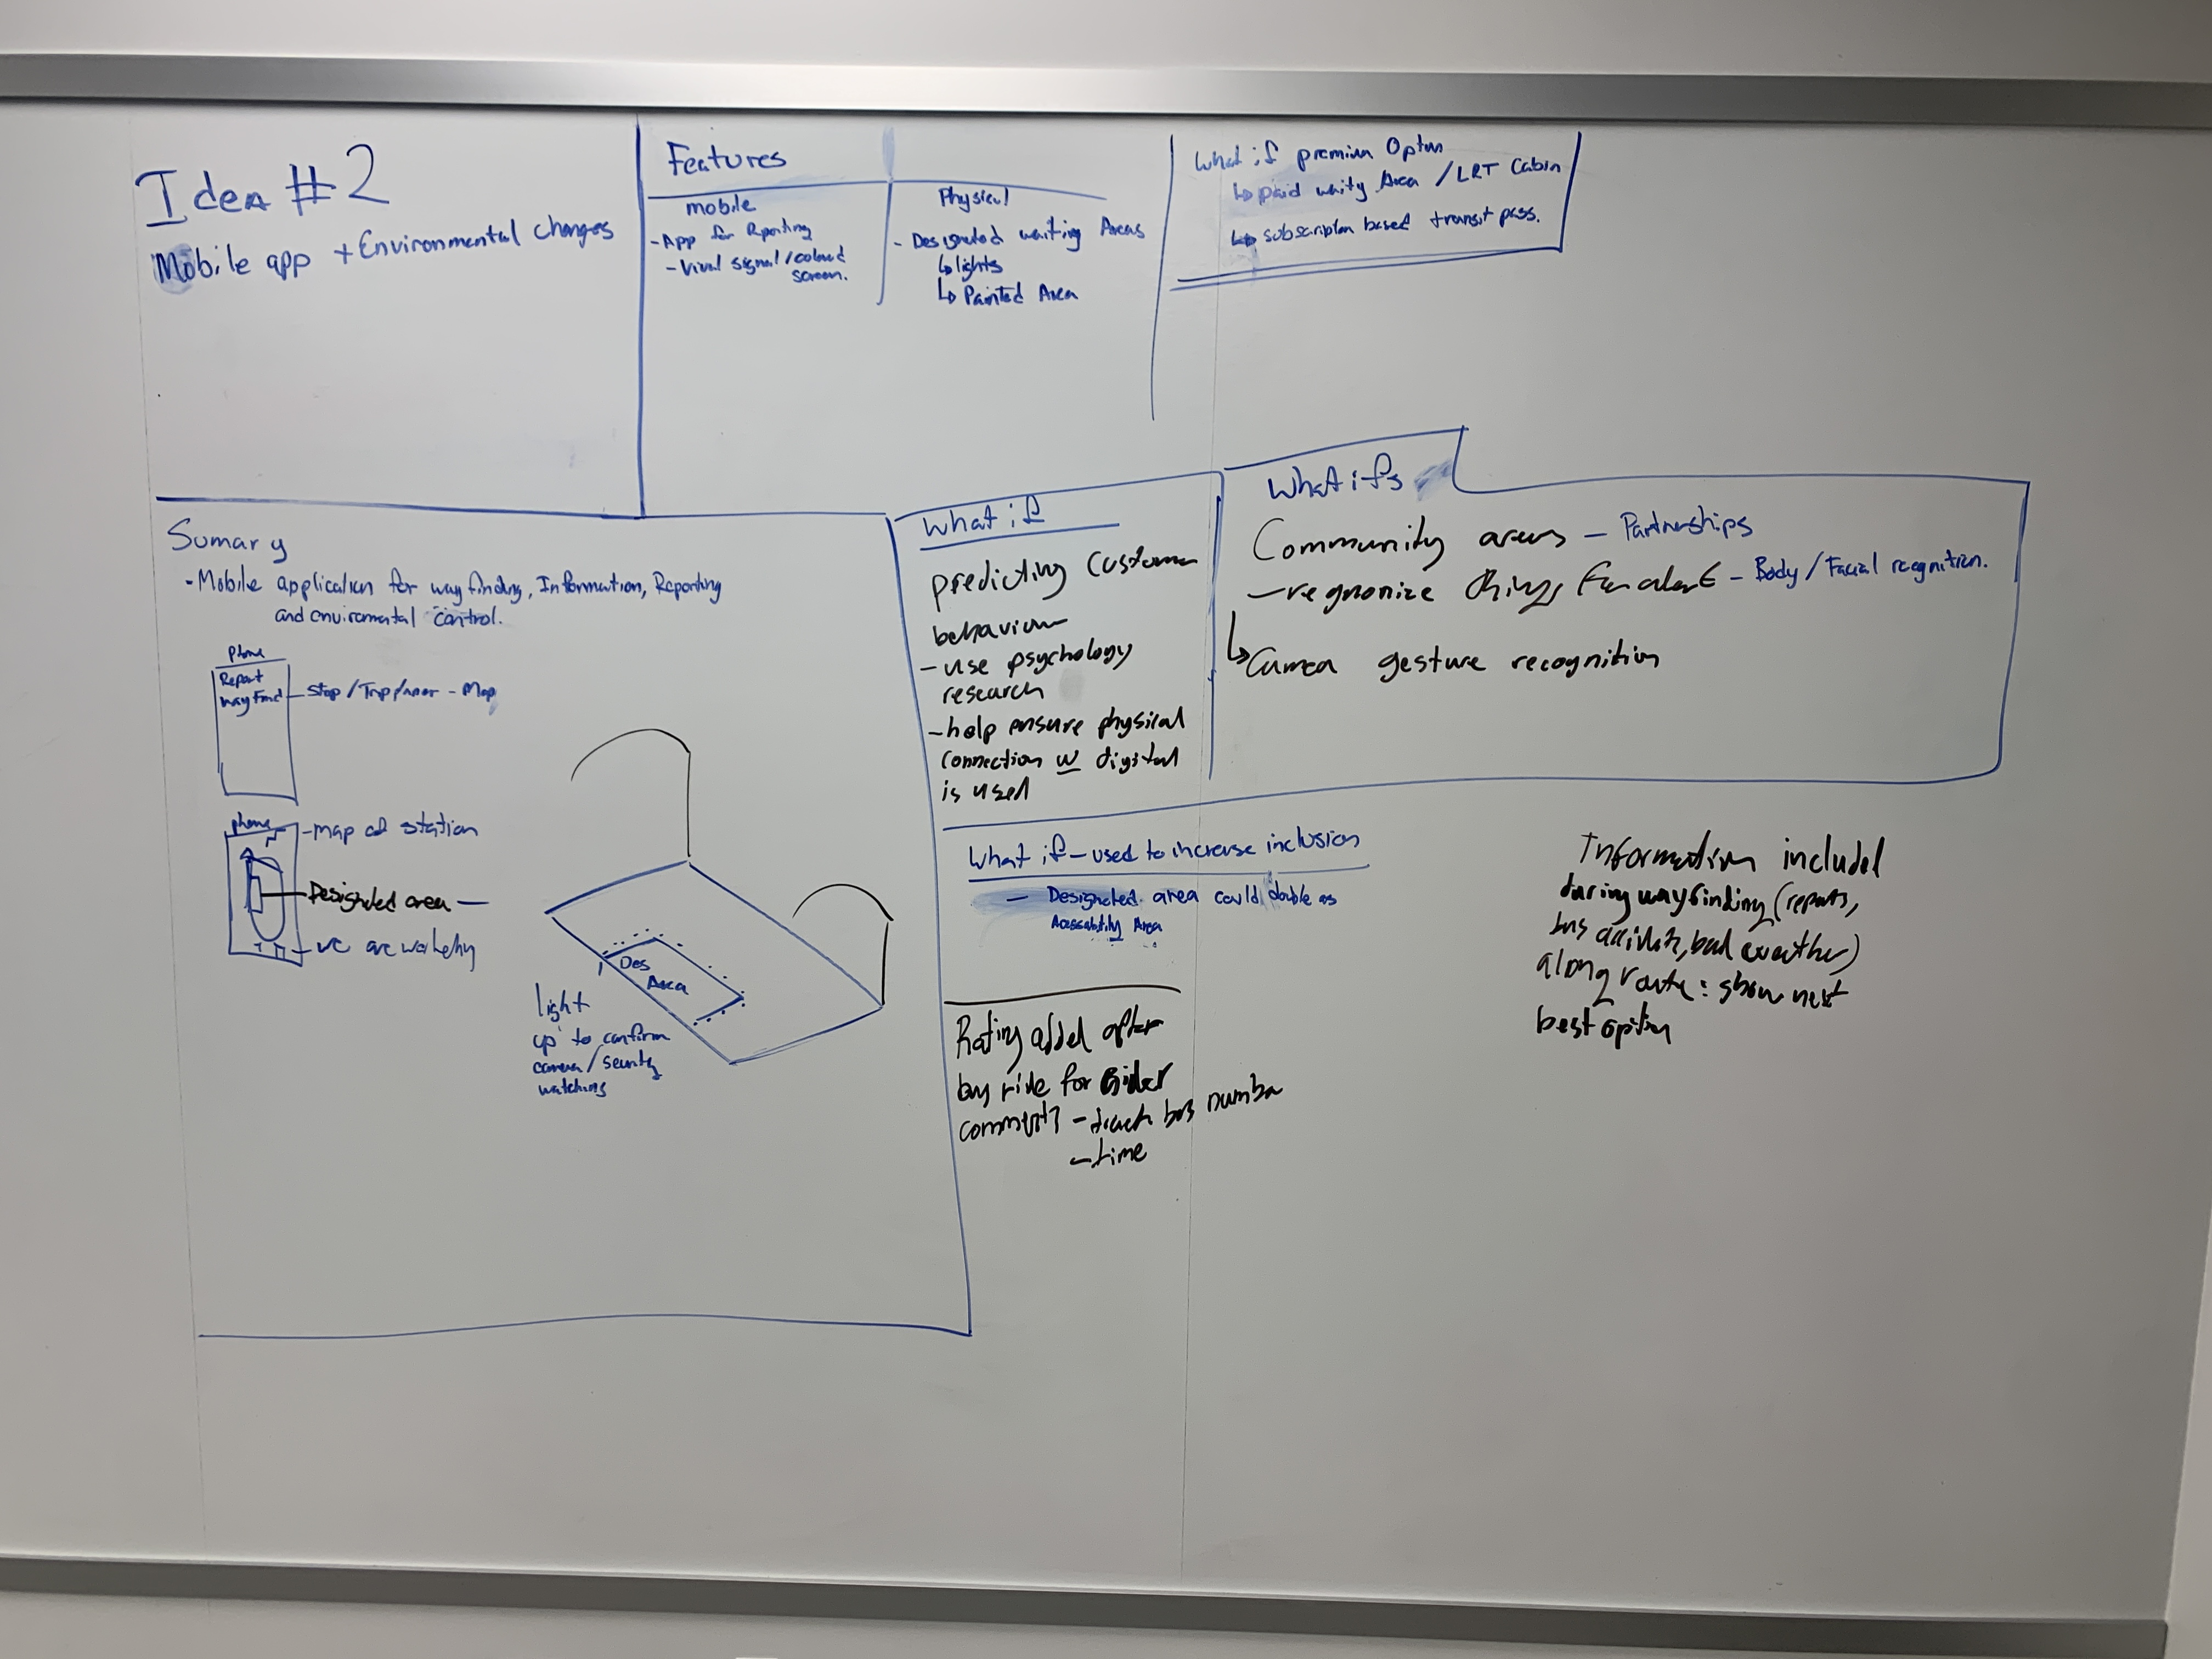 Idea #2
Mobile app + Environmental changes
Features
mobile
- App for Reporting
- Viual signal/colored
screen.
Physical
- Designated waiting Areas
↳ lights
↳ Painted Area
What if premium Option
↳ paid waity Area / LRT Cabin
↳ subscription based transit pass.
Sumary
- Mobile application for way finding, Information, Reporting
and enviromental control.
phone
Report
way Find - Stop / Trip planer - Map
phone - map of station
Designated area -
- we are watching
Des
Area
light
up to confirm
camera/security
watching
What if
predicting Customer
behaviour
- use psychology
research
- help ensure physical
connection w digital
is used
What ifs
Community areas - Partnerships
- regnonize things for alert - Body / Facial recognition.
↳ Camera gesture recognition
What if - used to increase inclusion
- Designated area could double as
Acessability Area
Rating added after
bus ride for
comments - track bus number
- time
Information included
during wayfinding (reports,
bus accidents, bad weather)
along route: show next
best option